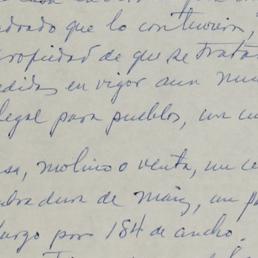 drado que lo contuviera,
propiedad de que se trata
edidas en vigor aun
legal para pueblos, un
sa, molino o venta, un
bradura de maiz, un
largo por 184 de ancho.